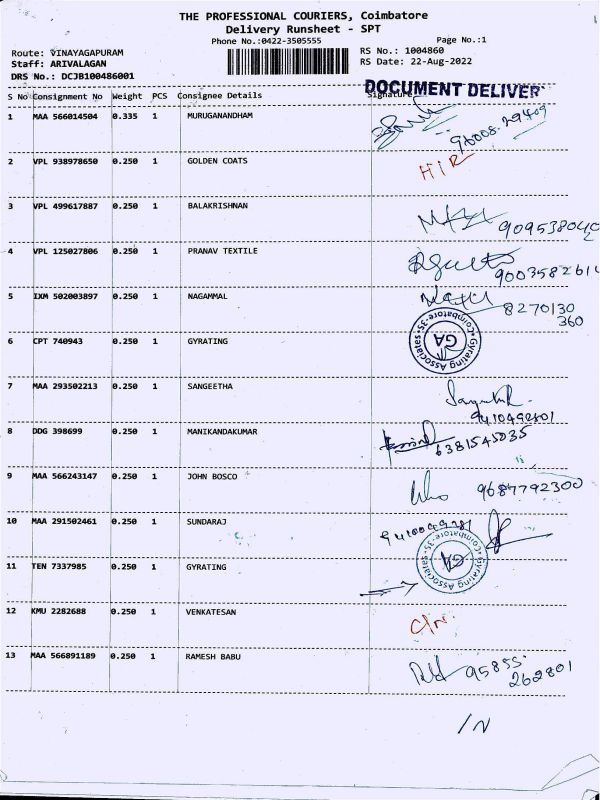 THE PROFESSIONAL COURIERS, Coimbatore
Delivery Runsheet - SPT
Phone No.:0422-3505555 Page No.:1
Route: VINAYAGAPURAM RS No.: 1004860
Staff: ARIVALAGAN RS Date: 22-Aug-2022
DRS No.: DCJB100486001
DOCUMENT DELIVER
S No Consignment No Weight PCS Consignee Details Signature
1 MAA 566014504 0.335 1 MURUGANANDHAM
2 VPL 938978650 0.250 1 GOLDEN COATS
3 VPL 499617887 0.250 1 BALAKRISHNAN
909538040
4 VPL 125027806 0.250 1 PRANAV TEXTILE
9003582614
5 IXM 502003897 0.250 1 NAGAMMAL
8270130
360
6 CPT 740943 0.250 1 GYRATING
Gyrating Associates Coimbatore-35 GA
7 MAA 293502213 0.250 1 SANGEETHA
8 DDG 398699 0.250 1 MANIKANDAKUMAR
6381545035
9 MAA 566243147 0.250 1 JOHN BOSCO
9687792300
10 MAA 291502461 0.250 1 SUNDARAJ
11 TEN 7337985 0.250 1 GYRATING
Gyrating Associates Coimbatore-35 GA
12 KMU 2282688 0.250 1 VENKATESAN
13 MAA 566891189 0.250 1 RAMESH BABU
95855
262801
/N